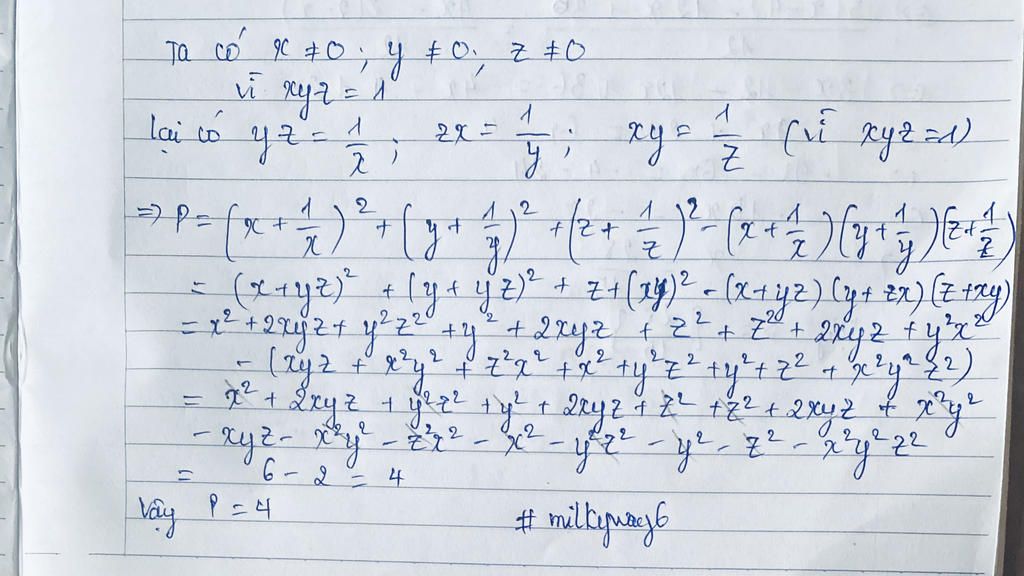 Ta có x ≠ 0 ; y ≠ 0 ; z ≠ 0
vì xyz = 1
lại có yz = 1/x ; zx = 1/y ; xy = 1/z (vì xyz = 1)
=> P = (x + 1/x)² + (y + 1/y)² + (z + 1/z)² - (x + 1/x)(y + 1/y)(z + 1/z)
= (x + yz)² + (y + yz)² + z + (xy)² - (x + yz)(y + zx)(z + xy)
= x² + 2xyz + y²z² + y² + 2xyz + z² + z² + 2xyz + y²x²
- (xyz + x²y² + z²x² + x² + y²z² + y² + z² + x²y²z²)
= x² + 2xyz + y²z² + y² + 2xyz + z² + z² + 2xyz + x²y²
- xyz - x²y² - z²x² - x² - y²z² - y² - z² - x²y²z²
= 6 - 2 = 4
Vậy P = 4 # milkyway6